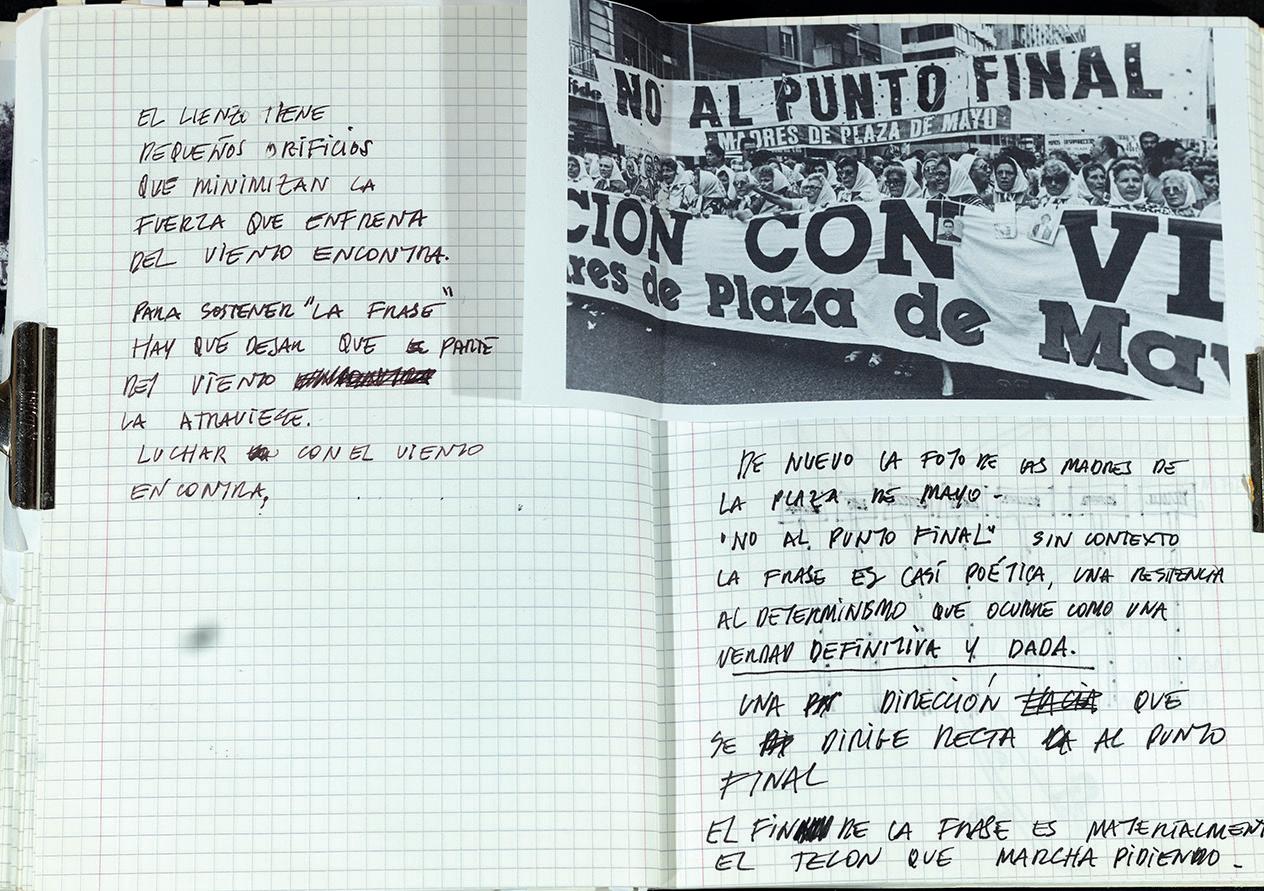 EL LIENZO TIENE
PEQUEÑOS ORIFICIOS
QUE MINIMIZAN LA
FUERZA QUE ENFRENTA
DEL VIENTO ENCONTRA.
PARA SOSTENER "LA FRASE"
HAY QUE DEJAR QUE PARTE
DEL VIENTO
LA ATRAVIESE.
LUCHAR CON EL VIENTO
EN CONTRA,
NO AL PUNTO FINAL
MADRES DE PLAZA DE MAYO
CION CON VI
res de Plaza de May
DE NUEVO LA FOTO DE LAS MADRES DE
LA PLAZA DE MAYO -
"NO AL PUNTO FINAL" SIN CONTEXTO
LA FRASE ES CASÍ POÉTICA, UNA RESITENCIA
AL DETERMINISMO QUE OCURRE COMO UNA
VERDAD DEFINITIVA Y DADA.
UNA DIRECCIÓN HACIA QUE
SE DIRIGE RECTA AL PUNTO
FINAL
EL FIN DE LA FRASE ES MATERIALMENT
EL TELON QUE MARCHA PIDIENDO -